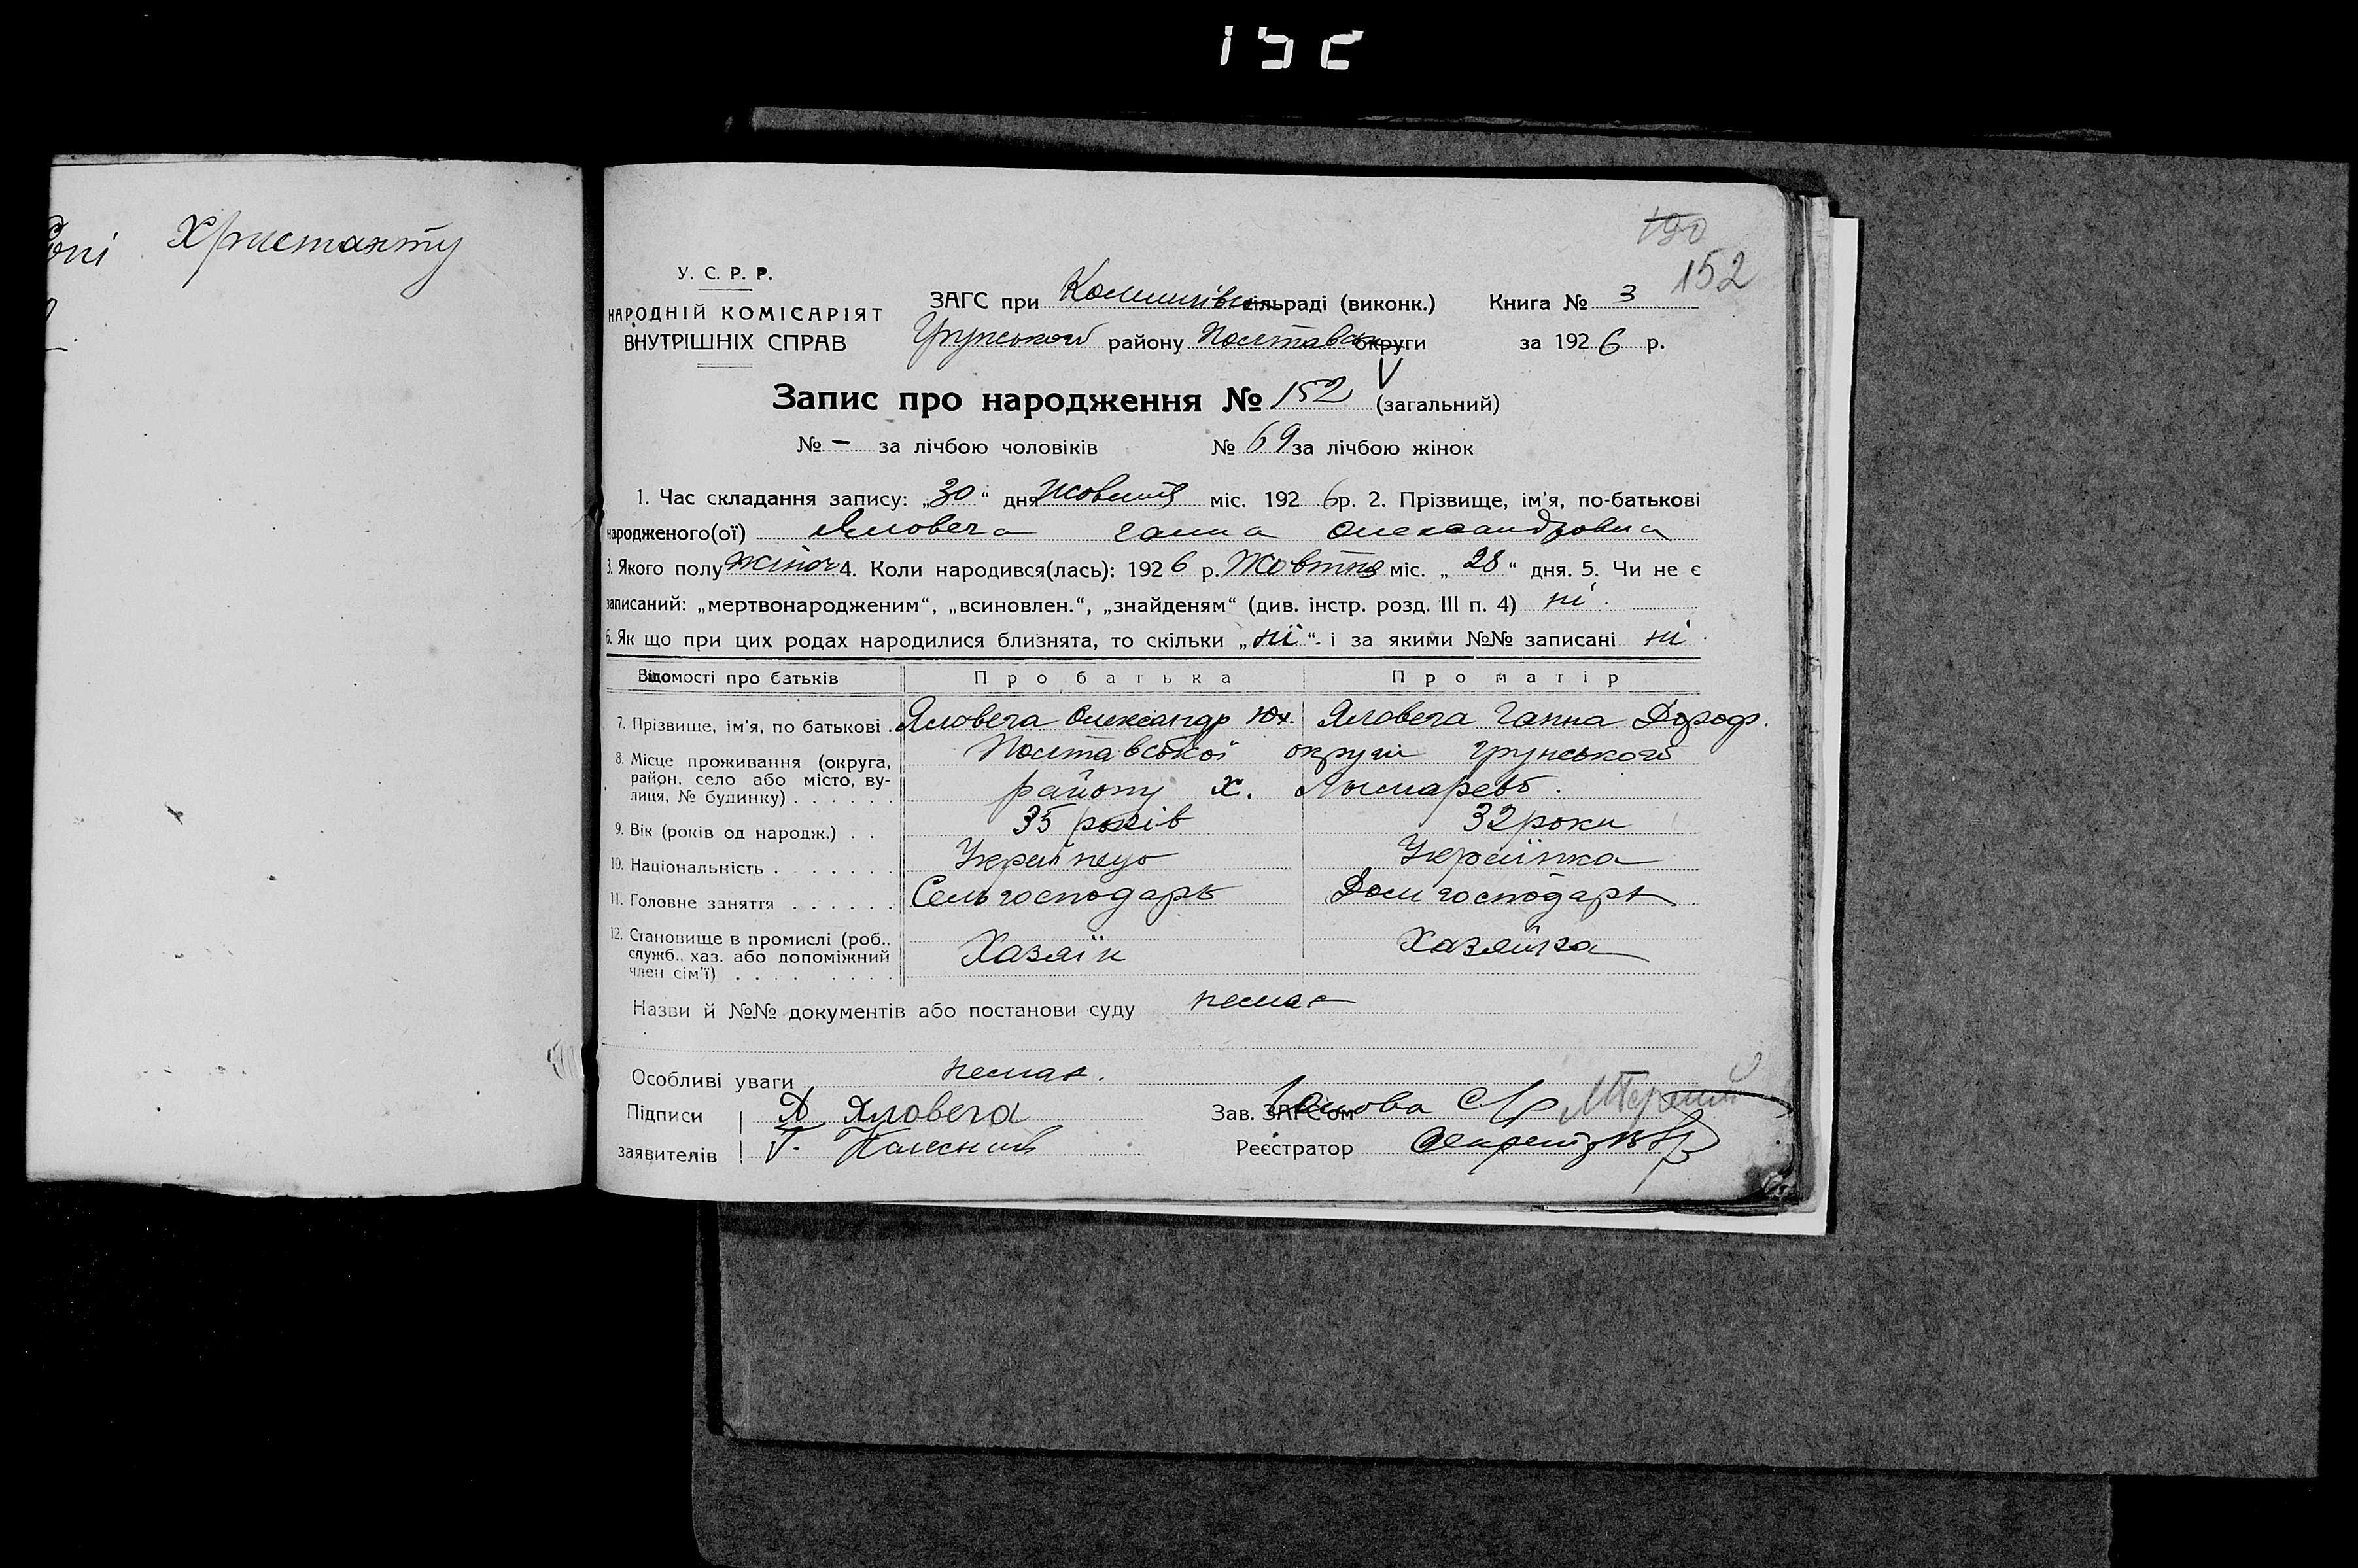 152
Христанту
190
152
У. С. Р. Р.
НАРОДНІЙ КОМІСАРІЯТ
ВНУТРІШНІХ СПРАВ
ЗАГС при сільраді (виконк.) Книга № 3
Грунського району Полтавськ округи за 1926 р.
Запис про народження № 152 (загальний)
№ – за лічбою чоловіків № 69 за лічбою жінок
1. Час складання запису: „30“ дня жовтня міс. 1926 р. 2. Прізвище, ім'я, по-батькові
народженого(ої) Яловега Ганна Олександровна
3. Якого полу жіноч 4. Коли народився(лась): 1926 р. Жовтня міс. „28“ дня. 5. Чи не є
записаний: „мертвонародженим“, „всиновлен.“, „знайденям“ (див. інстр. розд. III п. 4) ні.
6. Як що при цих родах народилися близнята, то скільки „ні“ і за якими №№ записані ні
Відомості про батьків Про батька Про матір
7. Прізвище, ім'я, по батькові . Яловега Олександр Юх. Яловега Ганна Дороф.
8. Місце проживання (округа, район, село або місто, вулиця, № будинку) . . . . . . Полтавської округи Грунського
району х.
9. Вік (років од народж.) . . 35 років 32 роки
10. Національність . . . . . . . Українець Українка
11. Головне заняття . . . . . . Сельгосподарь Домгосподарь
12. Становище в промислі (роб., служб., хаз. або допоміжний член сім'ї) . . . . . . . . . Хазяїн Хазяйка
Назви й №№ документів або постанови суду немає
Особливі уваги немає.
Підписи Я Яловега Зав. ЗАГС'ом
заявителів Г. Колесник Реєстратор